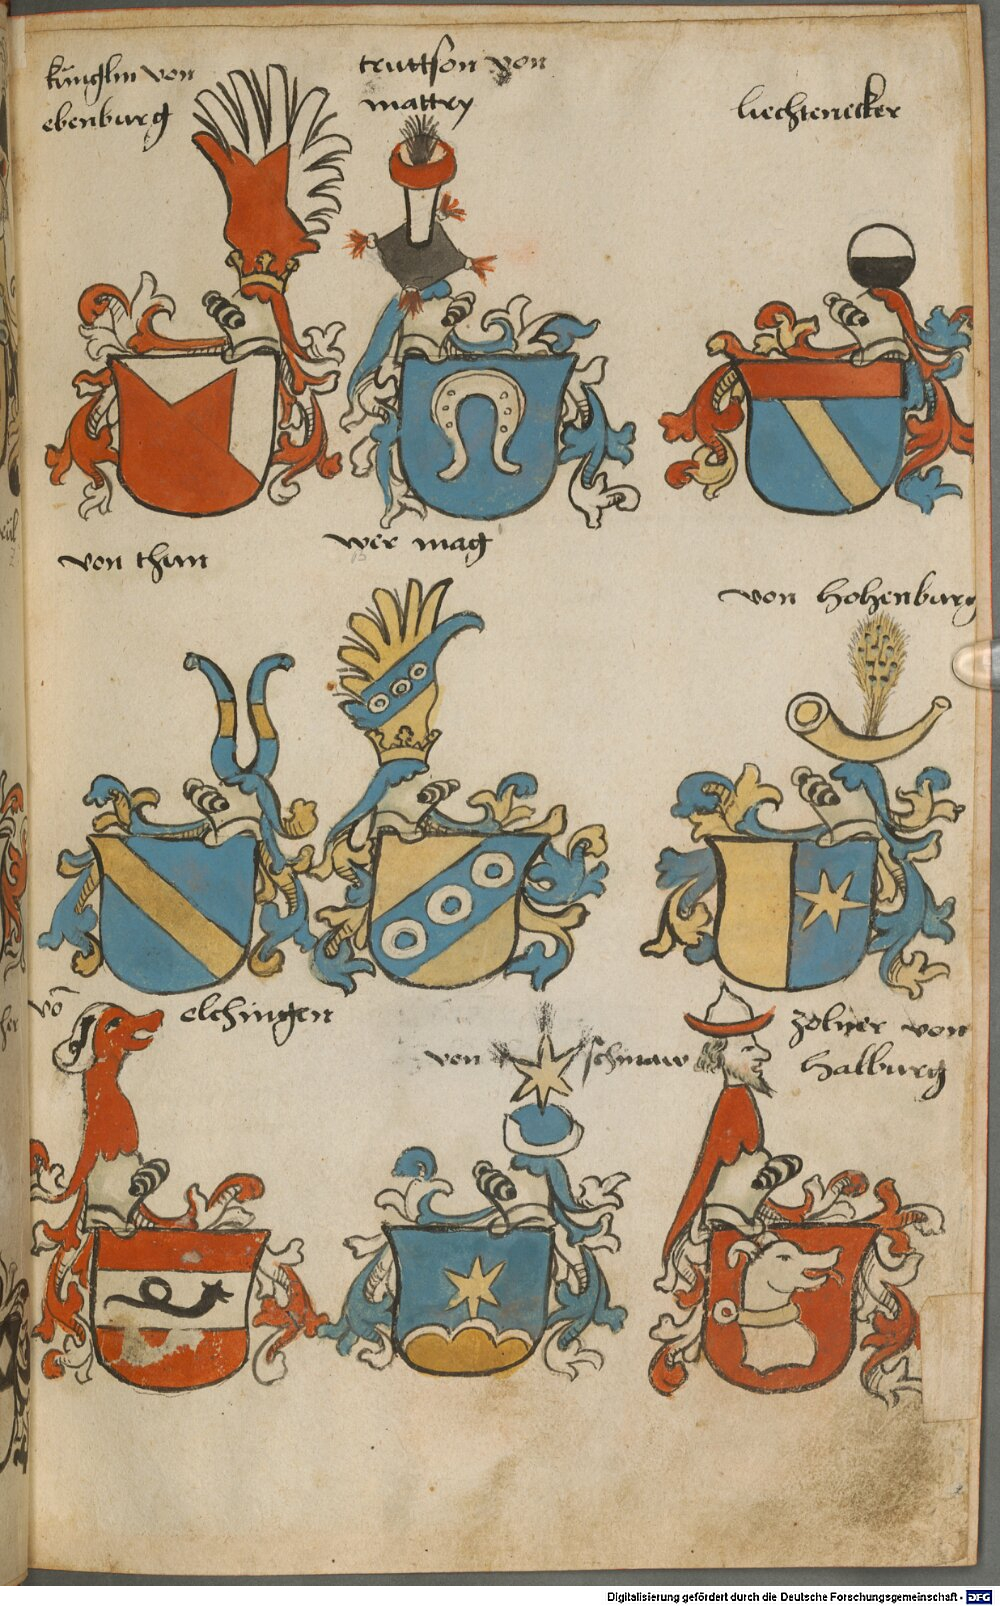 künglin von
ebenburg
truttson von
mattry
liechtenecker
von thun
wer mag
von hohenburg
vō elchingen
von schmaw
zolner von
halburg
Digitalisierung gefördert durch die Deutsche Forschungsgemeinschaft - DFG